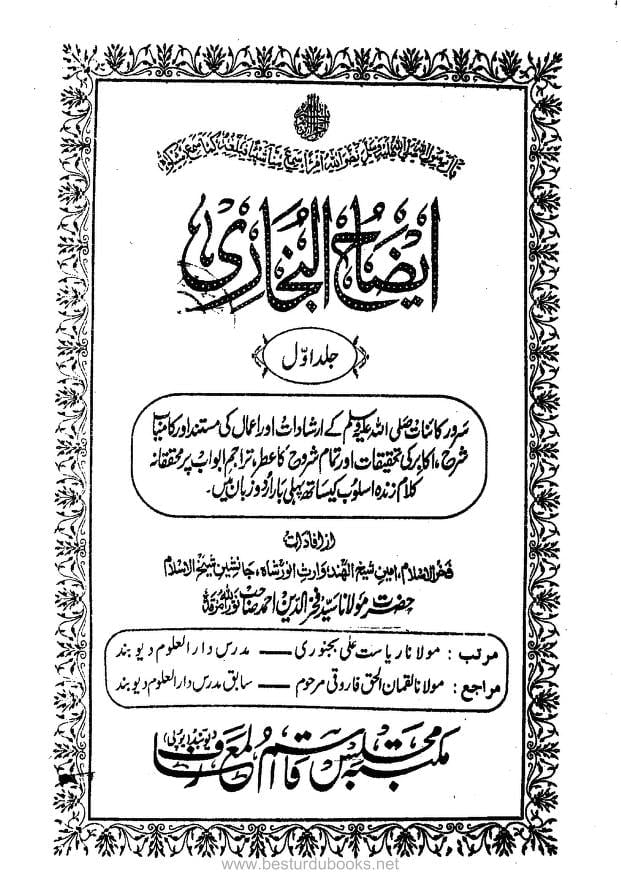 قال رسول الله صلى الله عليه وسلم نضر الله امرأ سمع منا شيئا فبلغه كما سمع
ایضاح البخاری
جلد اوّل
سرور کائنات صلی اللہ علیہ وسلم کے ارشادات اور اعمال کی مستند اور کامیاب
شرح، اکابر کی تحقیقات اور تمام شروح کا عطر، تراجم ابواب پر محققانہ
کلام زندہ اسلوب کیساتھ پہلی بار اُردو زبان میں۔
از افادات
فخر الاسلام، امین شیخ الہند، وارث انور شاہ، جانشین شیخ الاسلام
حضرت مولانا سید فخر الدین احمد صاحب نور اللہ مرقدہ
مرتب : مولانا ریاست علی بجنوری — مدرس دار العلوم دیوبند
مراجع : مولانا لقمان الحق فاروقی مرحوم — سابق مدرس دار العلوم دیوبند
مکتبہ مجلس قاسم المعارف دیوبند (یوپی)
www.besturdubooks.net